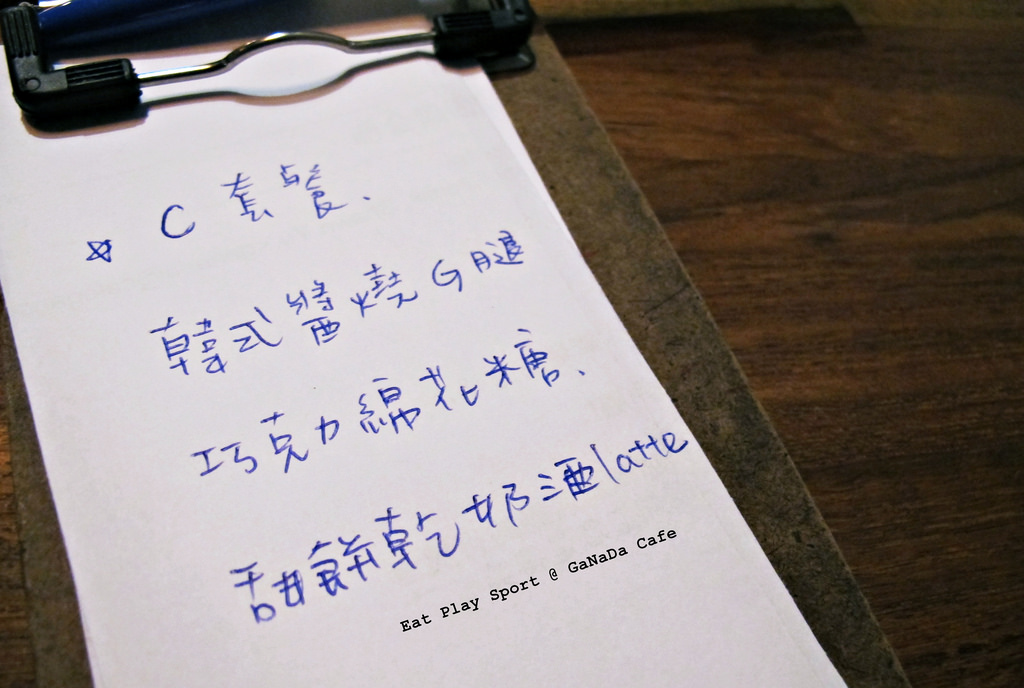 ☆ C 套餐.
韓式醬燒G腿
巧克力綿花糖.
甜餅乾奶酒latte
Eat Play Sport @ GaNaDa Cafe